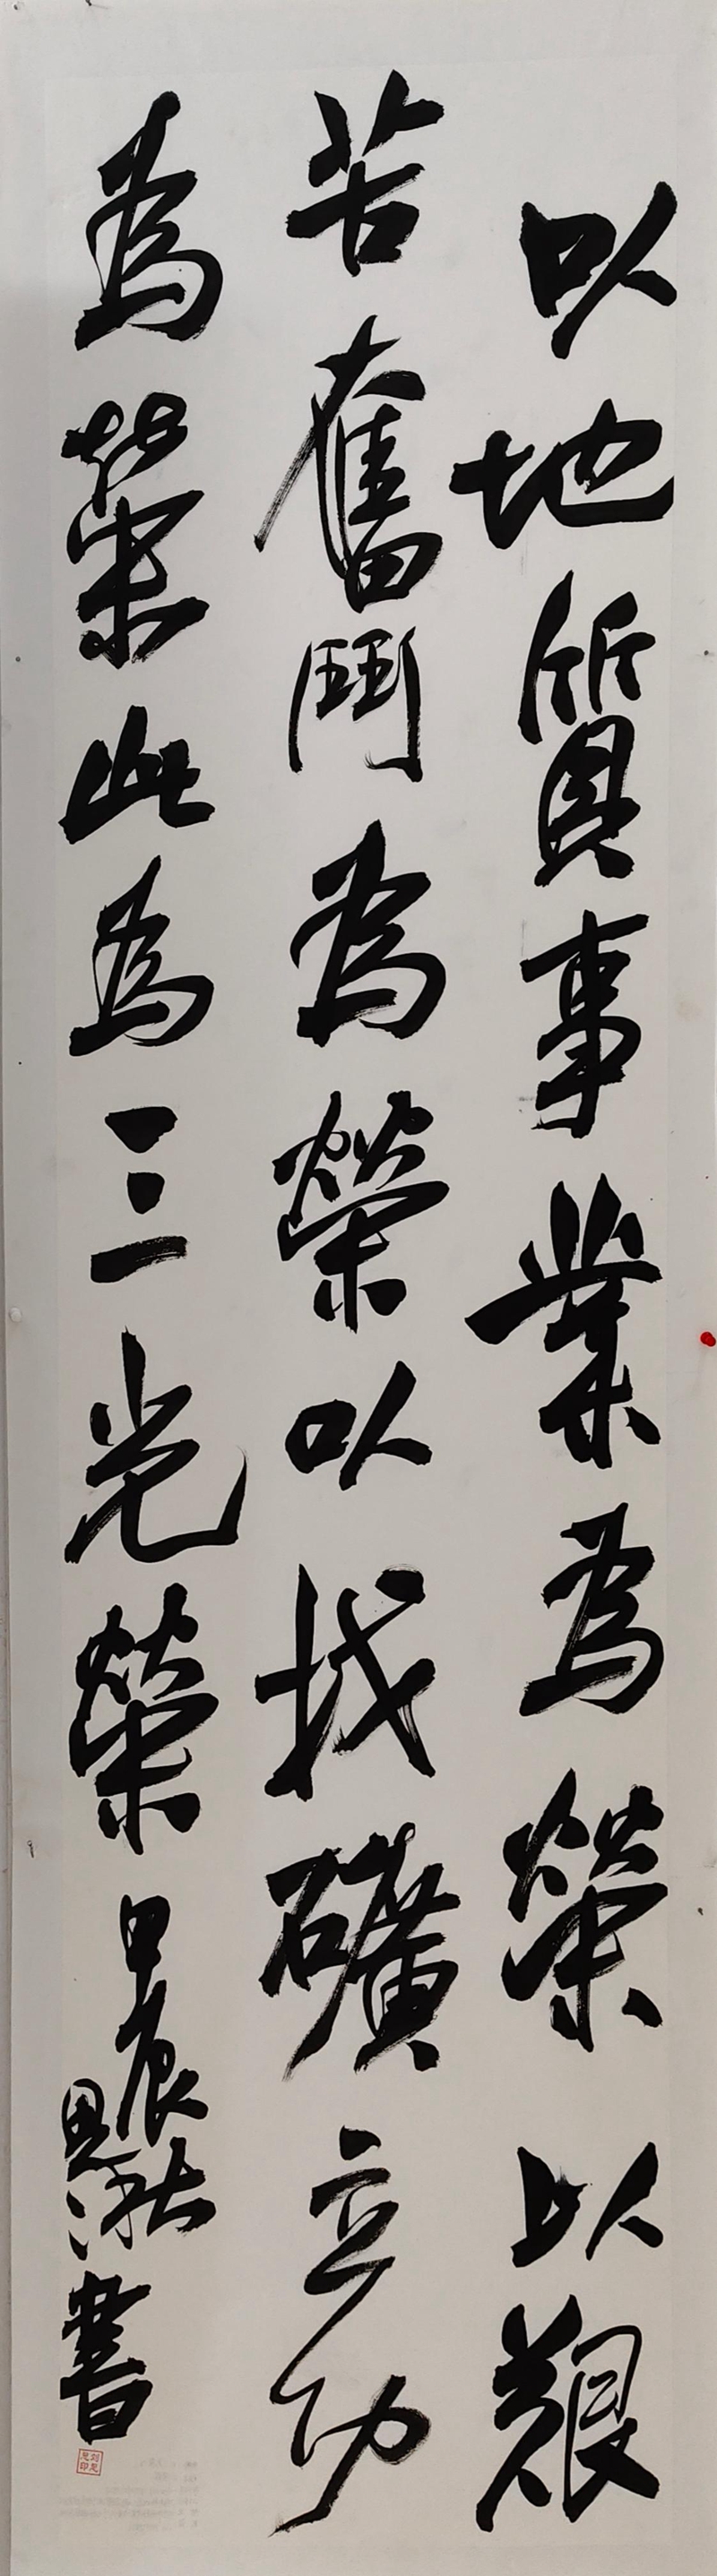 以地質事業為榮以艱
苦奮鬥為榮以找礦立功
為榮此為三光榮甲辰秋
恩沛書